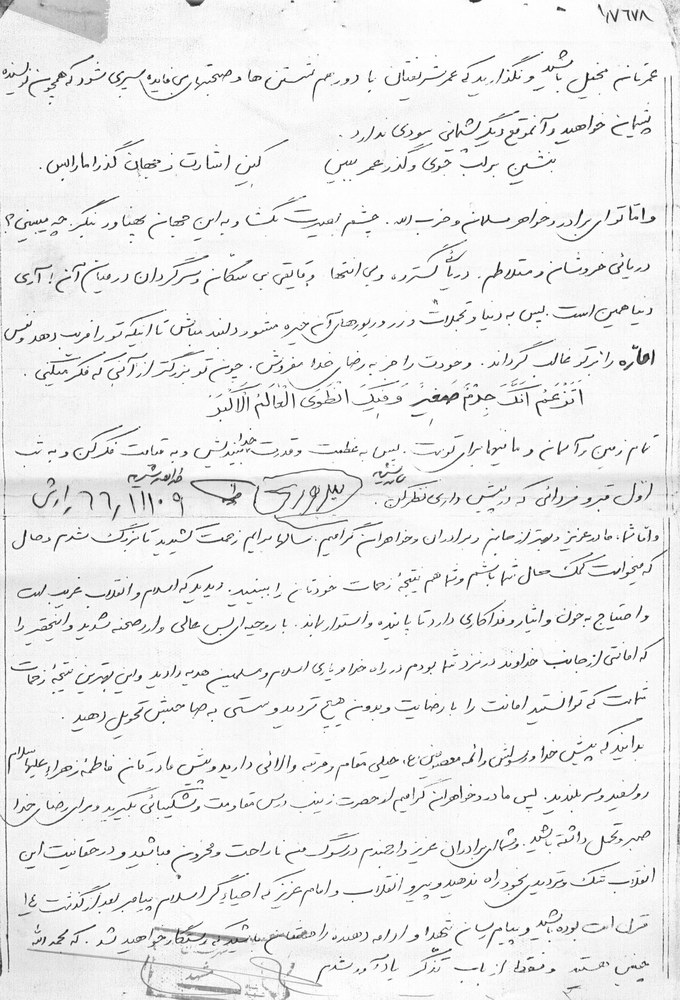 ۱۸۷۶۷۸
عمرتان بخیل باشید و نگذارید که عمر شریفتان با دور هم نشستن ها و صحبتهای بی فایده سپری شود که همچون نویسنده
پشیمان خواهید و آنموقع دیگر پشیمانی سودی ندارد.
بنشین بر لب جوی و گذر عمر ببین کین اشارت ز جهان گذرا ما را بس.
و اما تو ای برادر و خواهر مسلمان و حزب الله. چشم بصیرت بگشا و به این جهان پهناور بنگر. چه میبینی؟
دریائی خروشان و متلاطم. دریائی گسترده و بی انتها و قایقی بی سکان و سرگردان در میان آن! آری
دنیا همین است. پس به دنیا و تجملات و زر و زیورهای آن خیره مشو و دلبند مباش تا اینکه تو را فریب دهد و نفس
اماره را بر تو غالب گرداند. وجودت را جز به رضای خدا مفروش. چون تو بزرگتر از آنی که فکر میکنی.
اَتَزْعَمُ اَنَّکَ جِرْمٌ صَغیرٌ وَ فیکَ انْطَوَی الْعالَمُ الْاَکْبَرُ
تمام زمین و آسمان و مافیها برای توست. پس به عظمت و قدرت خدا بیندیش و به قیامت فکر کن و به شب
اول قبر و فردائی که در پیش داری نظر کن.
۶۶/۱۱/۰۹
و اما شما، مادر عزیز و بهتر از جانم و برادران و خواهران گرامیم. سالها برایم زحمت کشیدید تا بزرگ شدم و حال
که میخواست کمک حال شما باشم و شما هم نتیجۀ زحمات خودتان را ببینید. دیدید که اسلام و انقلاب غریب است
و احتیاج به خون و ایثار و فداکاری دارد تا پاینده و استوار بماند. با روحیه ای بس عالی وارد صحنه شدید و اینحقیر را
که امانتی از جانب خداوند در نزد شما بودم در راه خدا و یاری اسلام و مسلمین هدیه دادید و این بهترین نتیجۀ زحمات
شماست که توانستید امانت را با رضایت و بدون هیچ تردید و سستی به صاحبش تحویل دهید.
بدانید که پیش خدا و رسولش و ائمه معصومین ع، خیلی مقام و مرتبه والائی دارید و پیش مادرتان فاطمۀ زهراء علیها سلام
رو سفید و سر بلندید. پس مادر و خواهران گرامیم از حضرت زینب درس مقاومت و شکیبائی بگیرید و برای رضای خدا
صبر و تحمل داشته باشید. و شما ای برادران عزیز و ارجمندم در سوگ من ناراحت و محزون مباشید و در حقانیت این
انقلاب شک و تردیدی بخود راه ندهید و پیرو انقلاب و امام عزیز که احیاءگر اسلام پیامبر بعد از گذشت ۱۴
قرن است بوده باشید و پیام رسان شهدا و ادامه دهنده راهشان باشید که رستگار خواهید شد. که بحمد الله
چنین هستید و فقط از باب تذکر یادآور شدم